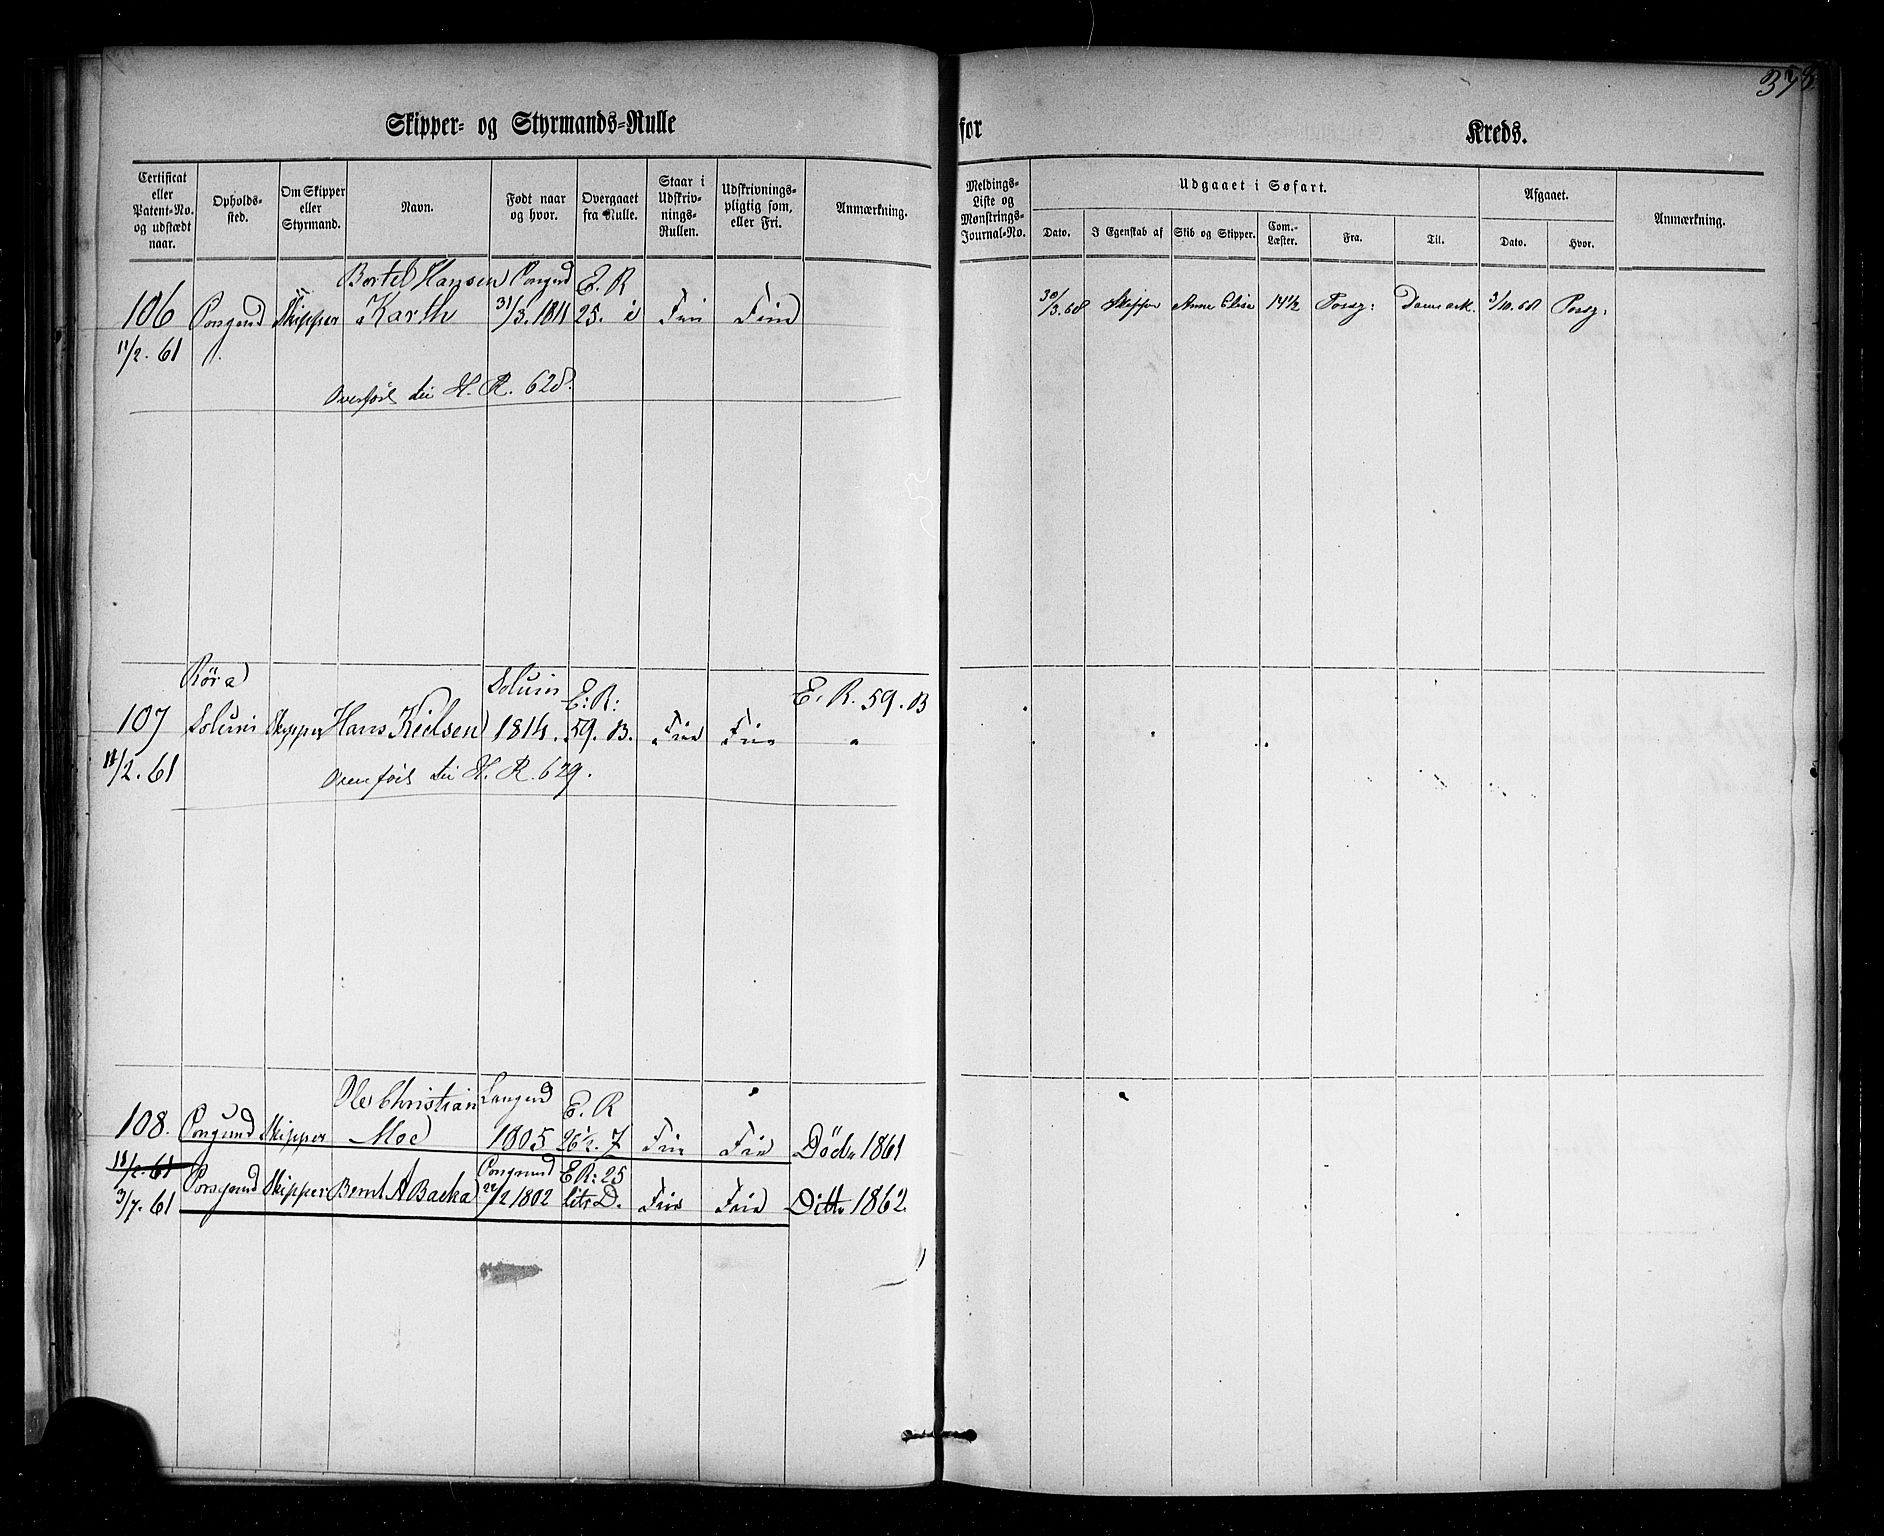 378
Skipper- og Styrmands-Rulle
for
Kreds.
Certificat eller Patent-No. og udstædt naar.
Opholds-sted.
Om Skipper eller Styrmand.
Navn.
Født naar og hvor.
Overgaaet fra Rulle.
Staar i Udskriv-nings-Rullen.
Udskrivnings-pligtig som, eller Fri.
Anmærkning.
Meldings-Liste og Mønstrings-Journal-No.
Udgaaet i Søfart.
Dato.
I Egenskab af
Skib og Skipper.
Com.-Læster.
Fra.
Til.
Afgaaet.
Dato.
Hvor.
Anmærkning.
Bertel Hansen
E. R
106 Porsgrund Skipper Karth 31/3. 1811 25. i Fri
30/3.68 Skipper Anne Elise 14 1/2 Porsg: Danmark. 3/10.68 Porsg:
11/2.61
Overført til H. R. 628.
Röra Solum E: R: E. R. 59. B
107 Solum Skipper Hans Kielsen 1814. 59. B. Frie Frie
11/2.61 Overført til H. R. 629.
Ole Christian Langesund E. R
108. Porsgrund Skipper Moe 1805 26 1/2. 7 Frie Frie Döde 1861
11/2.61 Porsgrund E R: 25
3/7.61 Porsgrund Skipper Bernt A Backa 22/2 1802 litr D. Frie Frie Ditto 1862.